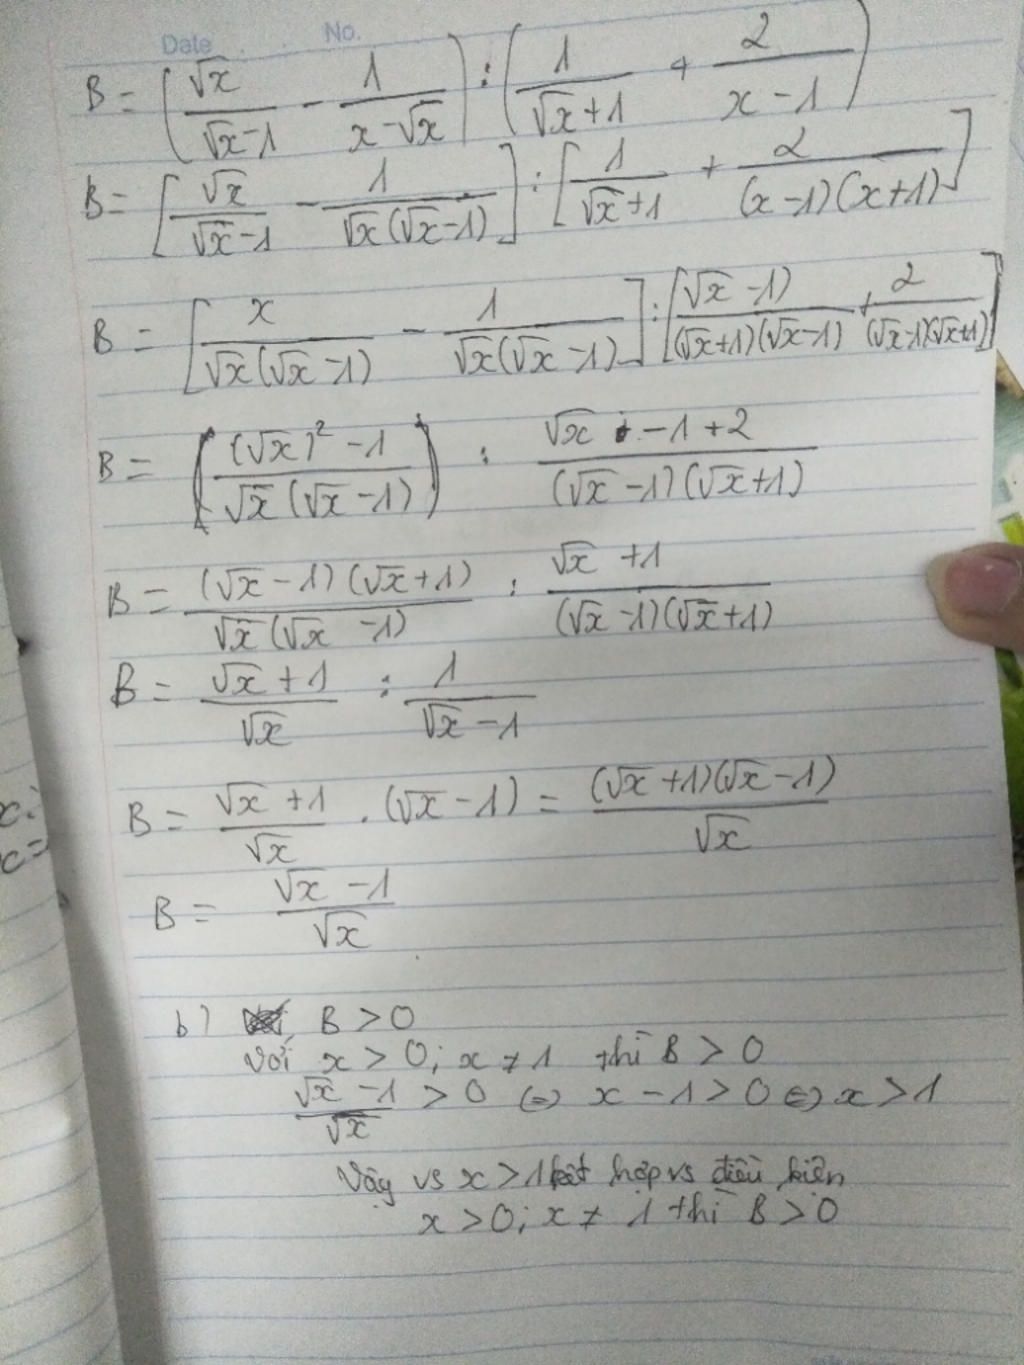 Date No.
B = (√x/(√x-1) - 1/(x-√x)) : (1/(√x+1) + 2/(x-1))
B = [√x/(√x-1) - 1/(√x(√x-1))] : [1/(√x+1) + 2/((x-1)(x+1))]
B = [x/(√x(√x-1)) - 1/(√x(√x-1))] : [(√x-1)/((√x+1)(√x-1)) + 2/((√x-1)(√x+1))]
B = (((√x)²-1)/(√x(√x-1))) : (√x -1+2)/((√x-1)(√x+1))
B = (√x-1)(√x+1)/(√x(√x-1)) : (√x+1)/((√x-1)(√x+1))
B = (√x+1)/√x : 1/(√x-1)
B = (√x+1)/√x . (√x-1) = (√x+1)(√x-1)/√x
B = (√x-1)/√x
b) B > 0
Với x > 0; x ≠ 1 thì B > 0
(√x-1)/√x > 0 ⇔ x-1 > 0 ⇔ x > 1
Vậy vs x > 1 kết hợp vs điều kiện
x > 0; x ≠ 1 thì B > 0